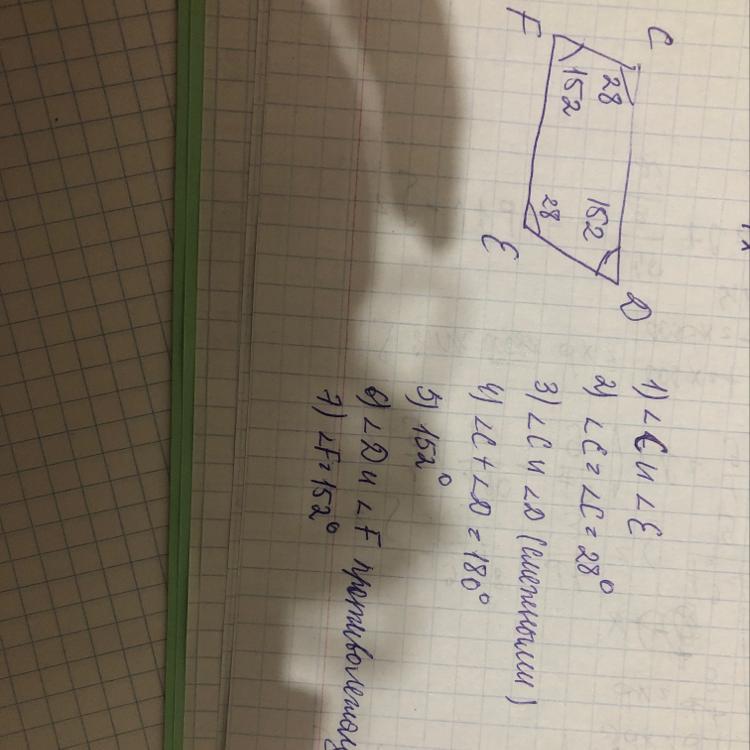 C
D
F
E
28
152
152
28
1) ∠C и ∠E
2) ∠E = ∠C = 28°
3) ∠C и ∠D (смежными)
4) ∠C + ∠D = 180°
5) 152°
6) ∠D и ∠F
7) ∠F = 152°